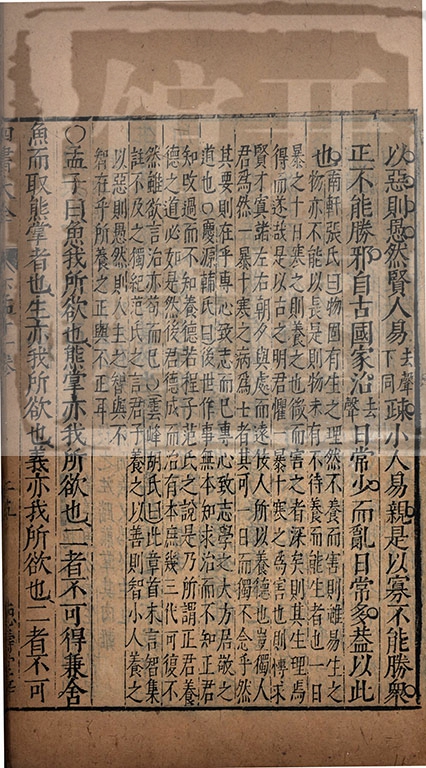 以惡則愚然賢人易去聲下同疎小人易親是以寡不能勝衆
正不能勝邪自古國家治去聲日常少而亂日常多蓋以此
也南軒張氏曰物固有生之理然不養而害則雖易生之
物亦不能以長是則物未有不待養而能生者也一日
暴之十日寒之則養之也微而害之者深矣則其生理焉
得而遂故是以古之明君懼一暴十寒之爲害也則博求
賢才寘諸左右朝夕與處而遠佞人所以養德也豈獨人
君爲然一暴十寒之病爲士者其可一日而獨不念乎然
其要則在乎專心致志而已專心致志學之大方居敬之
道也○慶源輔氏曰後世作事無本知求治而不知正君
知攻過而不知養德若程子范氏之說是乃所謂正君養
德之道必如是然後君德成而治有本庶幾三代可復不
然雖欲言治亦苟而已○雲峰胡氏曰此章首末言智集
註不及之獨紀范氏之言君子養之以善則智小人養之
以惡則愚然則人主之智與不
智在乎所養之正與不正耳
○孟子曰魚我所欲也熊掌亦我所欲也二者不可得兼舍
魚而取熊掌者也生亦我所欲也義亦我所欲也二者不可